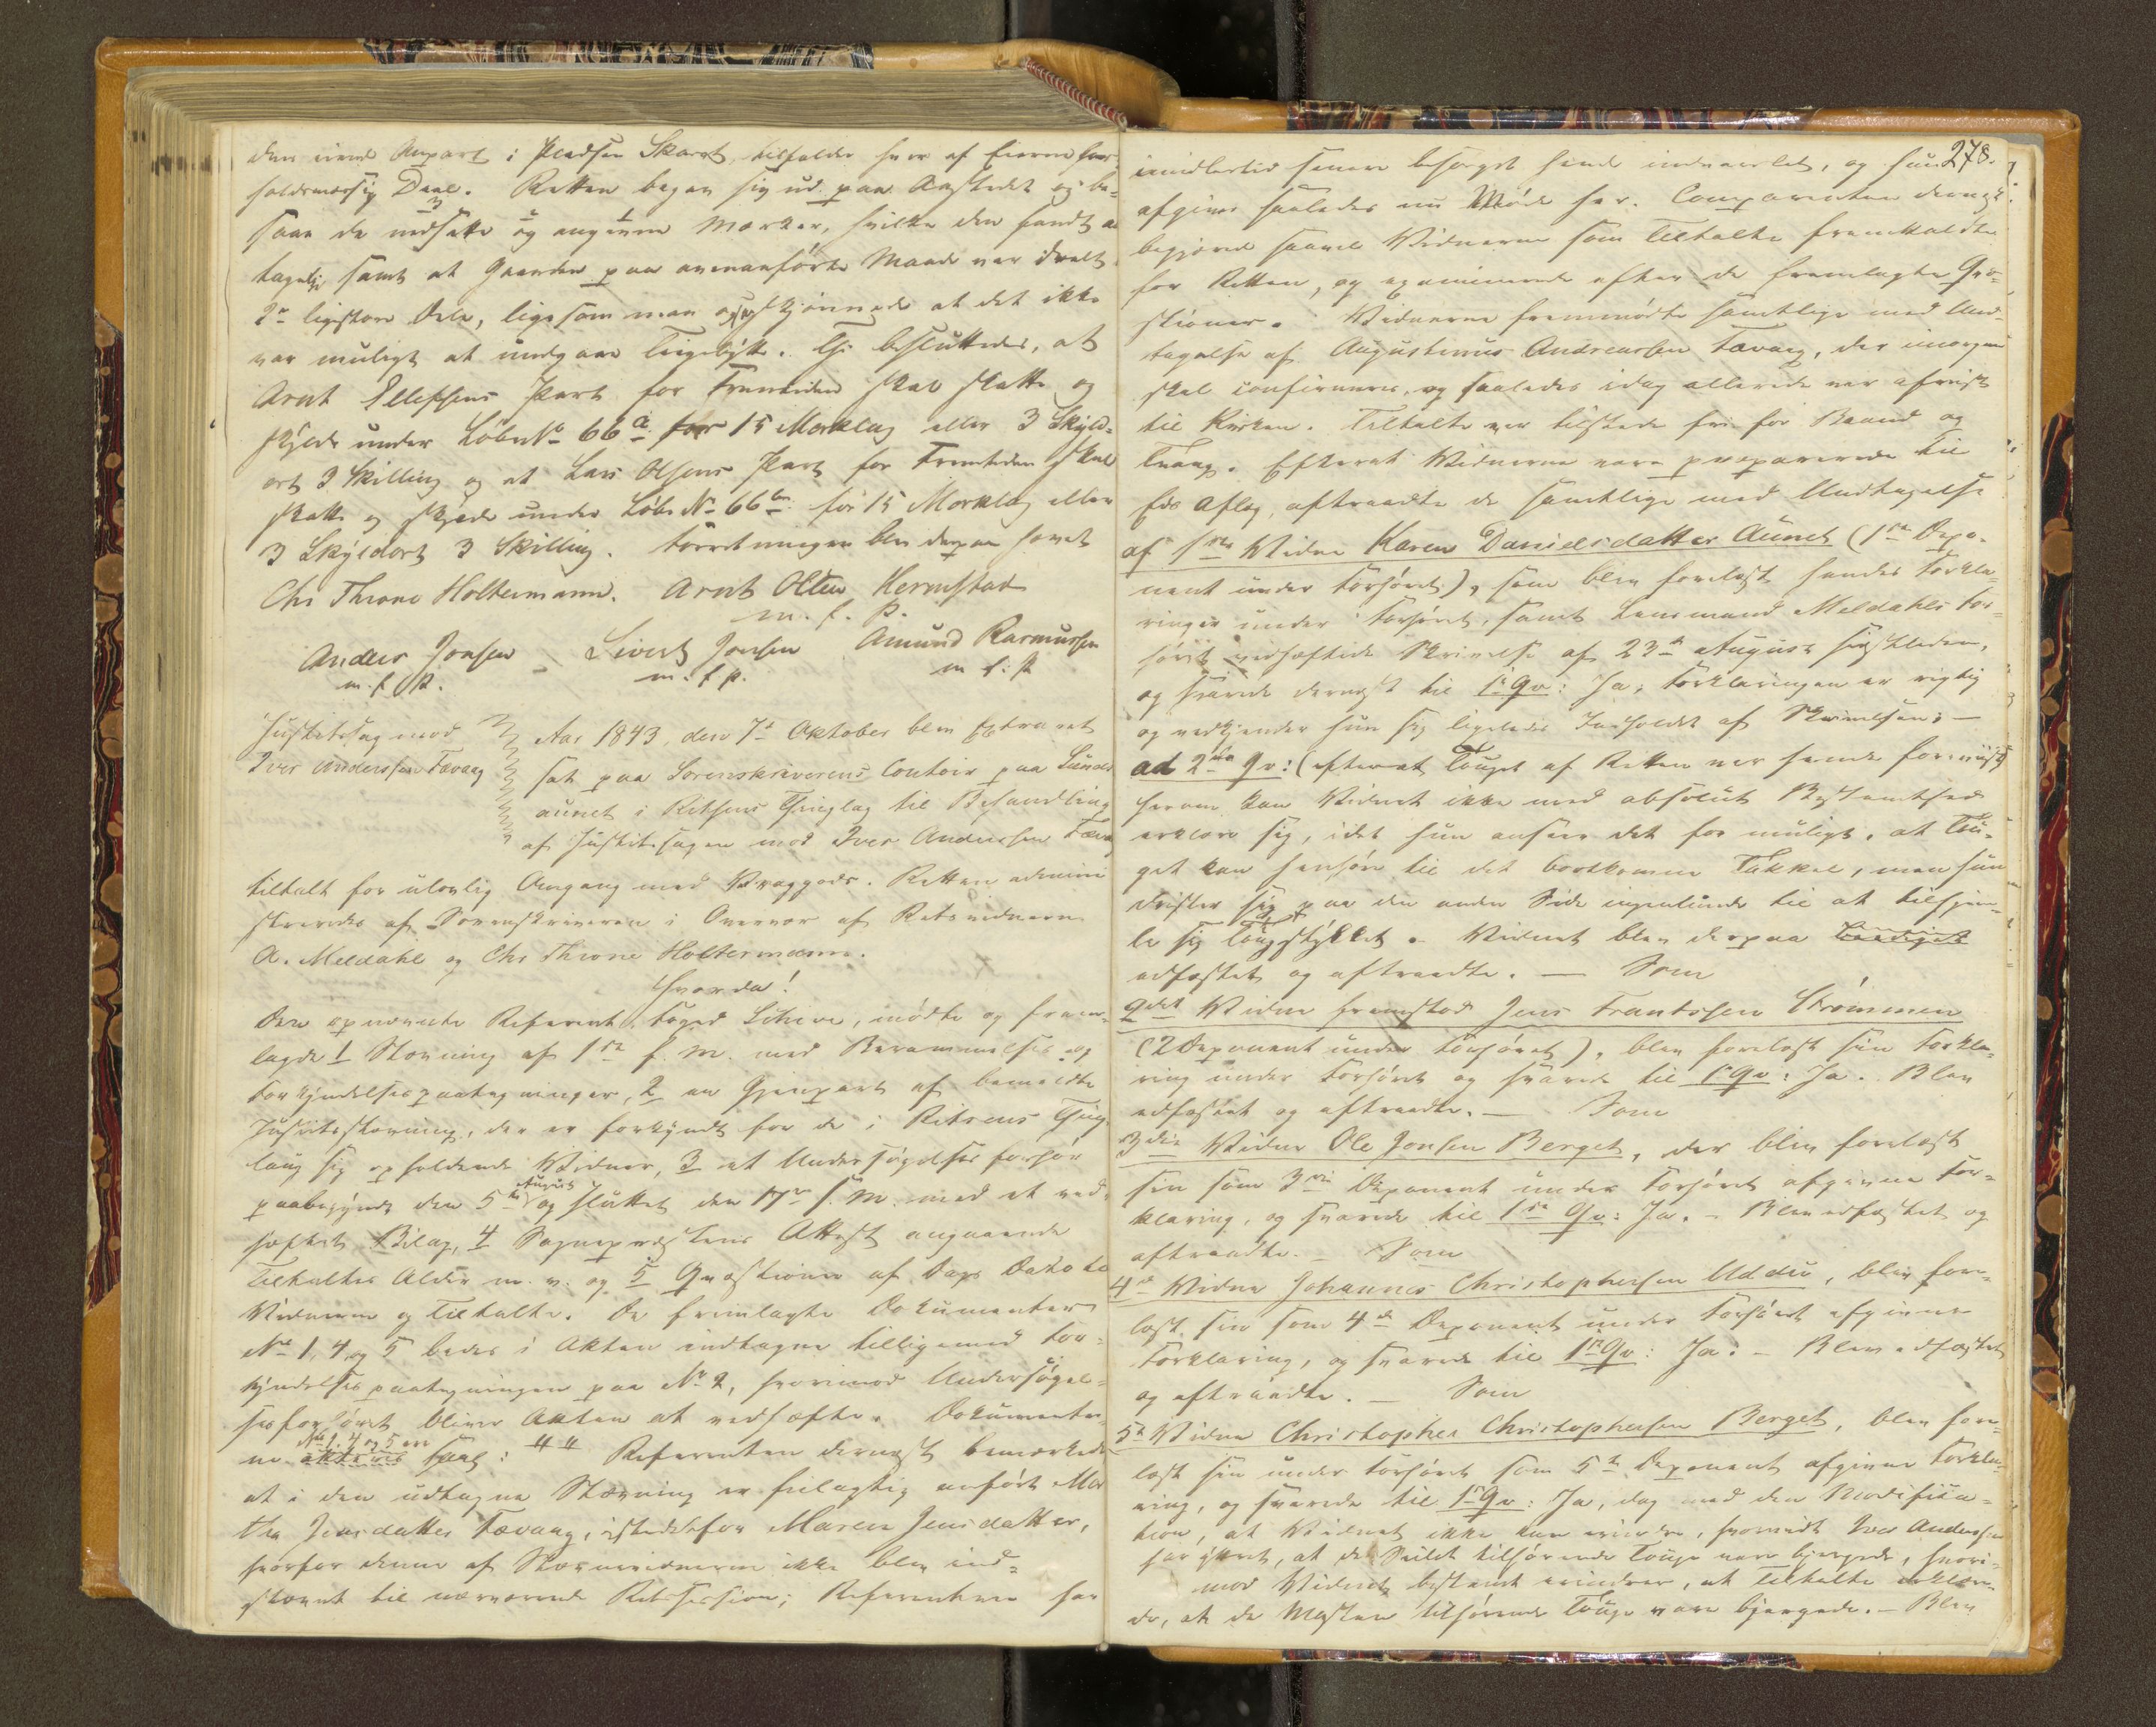 den ene Anpart i Pladsen Skaret, tilfalder hver af Eierne for-
holdsmæssig Deel. Retten begav sig ud paa Aastedet og be-
saae de nedsatte og angivne Mærker, hvilke den fandt an-
tagelige samt at Gaarden paa ovenanførte Maade var deelt
2de ligestore Dele, ligesom man og skjønnede at det ikke
var muligt at undgaae Teigebytte. Thi besluttedes, at
Arnt Ellefsens Part for Fremtiden skal skatte og
skylde under Løbe No 66 a for 15 Marklag eller 3 Skyld-
ort 3 Skilling og at Lars Olsens Part for Fremtiden skal
skatte og skylde under Løbe No 66 b for 15 Marklag eller
3 Skyldort 3 Skilling. Forretningen blev derpaa hævet
Chr Throne Holtermann. Arnt Olsen Hermstad
m. f. P.
Anders Jonsen Sivert Jonsen Amund Rasmussen
m. f. P. m. f. P. m. f. P.
Justitssag mod
Iver Anderssen Tævaag
Aar 1843, den 7de Oktober blev Extraret
sat paa Sorenskriverens Contoir paa Lunds
aunet i Ritsens Thinglag til Behandling
af Justitssagen mod Iver Anderssen Tævaag
tiltalt for ulovlig Omgang med Vraggods. Retten admini
streredes af Sorenskriveren i Overvær af Retsvidnerne
A. Meldahl og Chr Throne Holtermann.
Hvorda!
Den opnævnte Referent, Foged Schive, mødte og frem-
lagde 1 Stævning af 1ste f. M. med Berammelses og
Forkyndelsespaategninger, 2 en Gjenpart af bemeldte
Justitsstævning, der er forkyndt for de i Ritsens Thing
laug sig opholdende Vidner, 3 et Undersøgelsesforhør
paabegyndt den 5te August og sluttet den 17de s. M. med et ved-
hæftet Bilag, 4 Sognepræstens Attest angaaende
Tiltaltes Alder m. v. og 5 Qvæstioner af Dags Dato til
Vidnerne og Tiltalte. De fremlagte Dokumenter
No 1, 4 og 5 bedes i Akten indtagne tilligemed For-
kyndelsespaategningen paa No 2, hvorimod Undersøgel-
sesforhøret bliver Akten at vedhæfte. Dokumenter-
ne No 1, 4 og 5 ere saal: " " Referenten dernæst bemærkede
at i den udtagne Stævning er feilagtig anført Mar
tha Jensdatter Tævaag, istedetfor Maren Jensdatter,
hvorfor denne af Stævnevidnerne ikke blev ind-
stævnt til nærværende Retssession; Referenten har
278.
imidlertid senere besørget hende indvarslet, og hun
afgiver saaledes nu Møde her. Comparenten dernæst
begjærede saavel Vidnerne som Tiltalte fremkaldte
for Retten, og examinerede efter de fremlagte Qvæ-
stioner. Vidnerne fremmødte samtlige med Und-
tagelse af Augustinus Andreassen Tævaag, der imorgen
skal confirmeres, og saaledes idag allerede var afreist
til Kirken. Tiltalte var tilstede fri for Baand og
Tvang. Efterat Vidnerne vare præparerede til
Eds Aflæg, aftraadte de samtlige med Undtagelse
af 1ste Vidne Karen Danielsdatter Aunet (1ste Depo-
nent under Forhøret), som blev forelæst hendes Forkla-
ringer under Forhøret, samt Lensmand Meldahls For-
høret vedhæftede Skrivelse af 23de August sidstleden,
og svarede dernæst til 1ste Qv: Ja, Forklaringen er rigtig
og vedkjender hun sig ligeledes Indholdet af Skrivelsen; —
ad 2den Qv: (efterat Touget af Retten var hende foreviist)
herom kan Vidnet ikke med absolut Bestemthed
erklære sig, idet hun anseer det for muligt, at Tou-
get kan henhøre til det bortkomne Takkel, men hun
drister sig paa den anden Side ingenlunde til at tilhjem-
le sig Tougstykket. Vidnet blev derpaa
edfæstet og aftraadte. — Som
2det Vidne fremstod Jens Frantssen Strømmen
(2 Deponent under Forhøret), blev forelæst sin Forkla-
ring under Forhøret og svarede til 1ste Qv: Ja. Blev
edfæstet og aftraadte. — Som
3die Vidne Ole Jonsen Berget, der blev forelæst
sin som 3die Deponent under Forhøret afgivne For-
klaring, og svarede til 1ste Qv: Ja. — Blev edfæstet og
aftraadte. — Som
4de Vidne Johannes Christophersen Uddu, blev fore-
læst sin som 4de Deponent under Forhøret afgivne
Forklaring, og svarede til 1ste Qv: Ja. — Blev edfæstet
og aftraadte. — Som
5te Vidne Christopher Christophersen Berget, blev fore-
læst sin under Forhøret som 5te Deponent afgivne Forkla-
ring, og svarede til 1ste Qv: Ja, dog med den Modifica-
tion, at Vidnet ikke kan erindre, hvorvidt Iver Anderssen
har yttret, at de Seilet tilhørende Touge vare bjergede, hvori-
mod Vidnet bestemt erindrer, at Tiltalte erklære-
de, at de Masten tilhørende Touge vare bjergede. — Blev